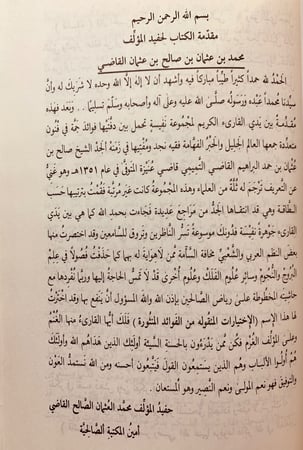 بسم الله الرحمن الرحيم
مقدّمة الكتاب لحفيد المؤلّف
محمد بن عثمان بن صالح بن عثمان القاضي
الحمْدُ لله حمداً كثيراً طيّباً مباركاً فيه وأشهد أن لا إلهَ إلاّ الله وحده لا شَرِيكَ له وأنّ
سيِّدنا محمداً عبْده ورَسُوله صلَّى الله عليه وعلَى آله وأصحابه وسلّم تسليماً.. وبَعد فهذه
مُقدِّمة بين يدي القارىء الكريم لمجْمُوعة نفِيسة تحمل بين دفّتيها فوائدَ جمّة في فُنون
متعدّدة جمعها العالم الجليل والحَبْر الفهّامة فقيه نجد ومفْتيها في زمَنه الجدّ الشيخ صالح بن
عثْمان بن حمد البراهيم القاضي التّميمي قاضي عُنيْزة المتوفّى في عَام ١٣٥١هـ وهو غَنيٌّ
عن التّعريف تَرْجَم له ثُلَّة من العلماء وهذه المجمُوعة كانت غير مُرتّبة فقُمْتُ بترتيبها حسَب
الطّاقة وهي قد انتقاها الجدُّ من مَراجعَ عَديدة فجَاءت بحمْد الله كما هي بين يَدي
القارىء جَوْهَرة نفِيسَة فذُونك مَوْسوعةً تسرُّ النّاظرين وتروق للسّامعين وقد اختصرتُ منها
بعضَ النّظم العربي والشّعبي مخافة السّآمة ممّن لا هوايةَ له بهما كما حَذفتُ فُصُولاً في عِلْم
البُروج والنّجوم وسائرِ عُلُوم الفَلك وعُلُوم أُخرَى قَدْ لا تَمسّ الحَاجةُ إليها وربّما نُفردها مع
حاشيَة المخْطوطة علَى رياض الصّالحين بإذْن الله والله المسؤول أنْ ينْفع بها وقد اخترْتُ
لها هذا الإسْم (الإختيارات المنقوله من الفوائد المنثورة) فلكَ أيّها القَارىءُ منها الغُنْمُ
وعلَى المؤلّف الغُرْم فكُن ممّنْ يدْرَءُون بالحسنة السيّئة أولئك الذين هَدَاهُم الله وأولئك
هُم أُولوا الألبَاب وهم الذينَ يَستَمِعُونَ القَولَ فيَتَّبِعُون أحسنَه ومن الله نَستمدّ العَوْن
والتوفيق فهو نعم المولَى ونعم النَّصير وهو المستعان.
حفيدُ المؤلّف محمّد العُثمان الصّالح القاضي
أمين المكتبة الصّالحيّة